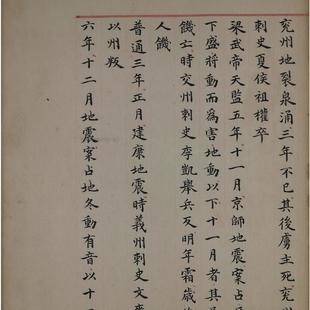 兖州地裂泉涌三年不已其後虜主死兖
刺史夏侯祖權卒
梁武帝天監五年十一月京師地震案占
下盛將動而為害地動以下十一月者其
饑亡時交州刺史李凱舉兵反明年霜歲
人饑
普通三年正月建康地震時義州刺史文
以州叛
六年十二月地震案占地冬動有音以十